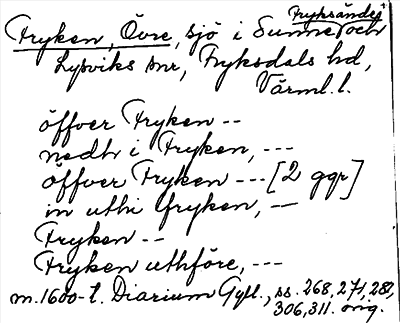 Fryksände,
Fryken, Övre, sjö i Sunne och
Lysviks snr, Fryksdals hd,
Värml. l.
öffver Fryken --
nedh i Fryken, ---
öffver Fryken --- [2 ggr]
in uthi fryken, --
Fryken --
Fryken uthföre, ---
m. 1600-t. Diarium Gyll., ss. 268, 271, 281,
306, 311. orig.